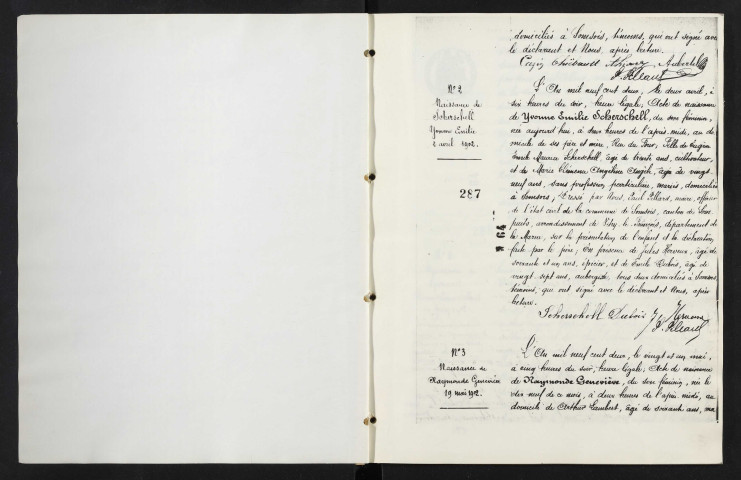 domiciliés à Somsois, témoins, qui ont signé avec
le déclarant et Nous, après lecture.
Thiébault Aubertel
P. Pillard
N° 2
Naissance de
Scherschell
Yvonne Emilie
2 avril 1902.
287
L'An mil neuf cent deux, le deux avril, à
six heures du soir, heure légale, Acte de naissance
de Yvonne Emilie Scherschell, du sexe féminin,
née aujourd'hui, à deux heures de l'après-midi, au do-
micile de ses père et mère, Rue du Four, Fille de Eugène
Emile Maurice Scherschell, âgé de trente ans, cultivateur,
et de Marie Clémence Angéline, âgée de vingt
neuf ans, sans profession particulière, mariés, domiciliés
à Somsois; Dressé par Nous, Paul Pillard, maire, officier
de l'état civil de la commune de Somsois, canton de Som
puis, arrondissement de Vitry le François, département de
la Marne, sur la présentation de l'enfant et la déclaration
faite par le père; En présence de Jules Herveux, âgé de
soixante et un ans, épicier, et de Emile Dubois, âgé de
vingt-sept ans, aubergiste, tous deux domiciliés à Somsois,
témoins, qui ont signé avec le déclarant et Nous, après
lecture.
Scherschell Dubois
P. Pillard
N° 3
Naissance de
Raymonde Geneviève
19 mai 1902.
L'An mil neuf cent deux, le vingt et un mai,
à cinq heures du soir, heure légale; Acte de naissance
de Raymonde Geneviève, du sexe féminin, née le
dix neuf de ce mois, à deux heures de l'après midi, au
domicile de Arthur Lambert, âgé de soixante ans,